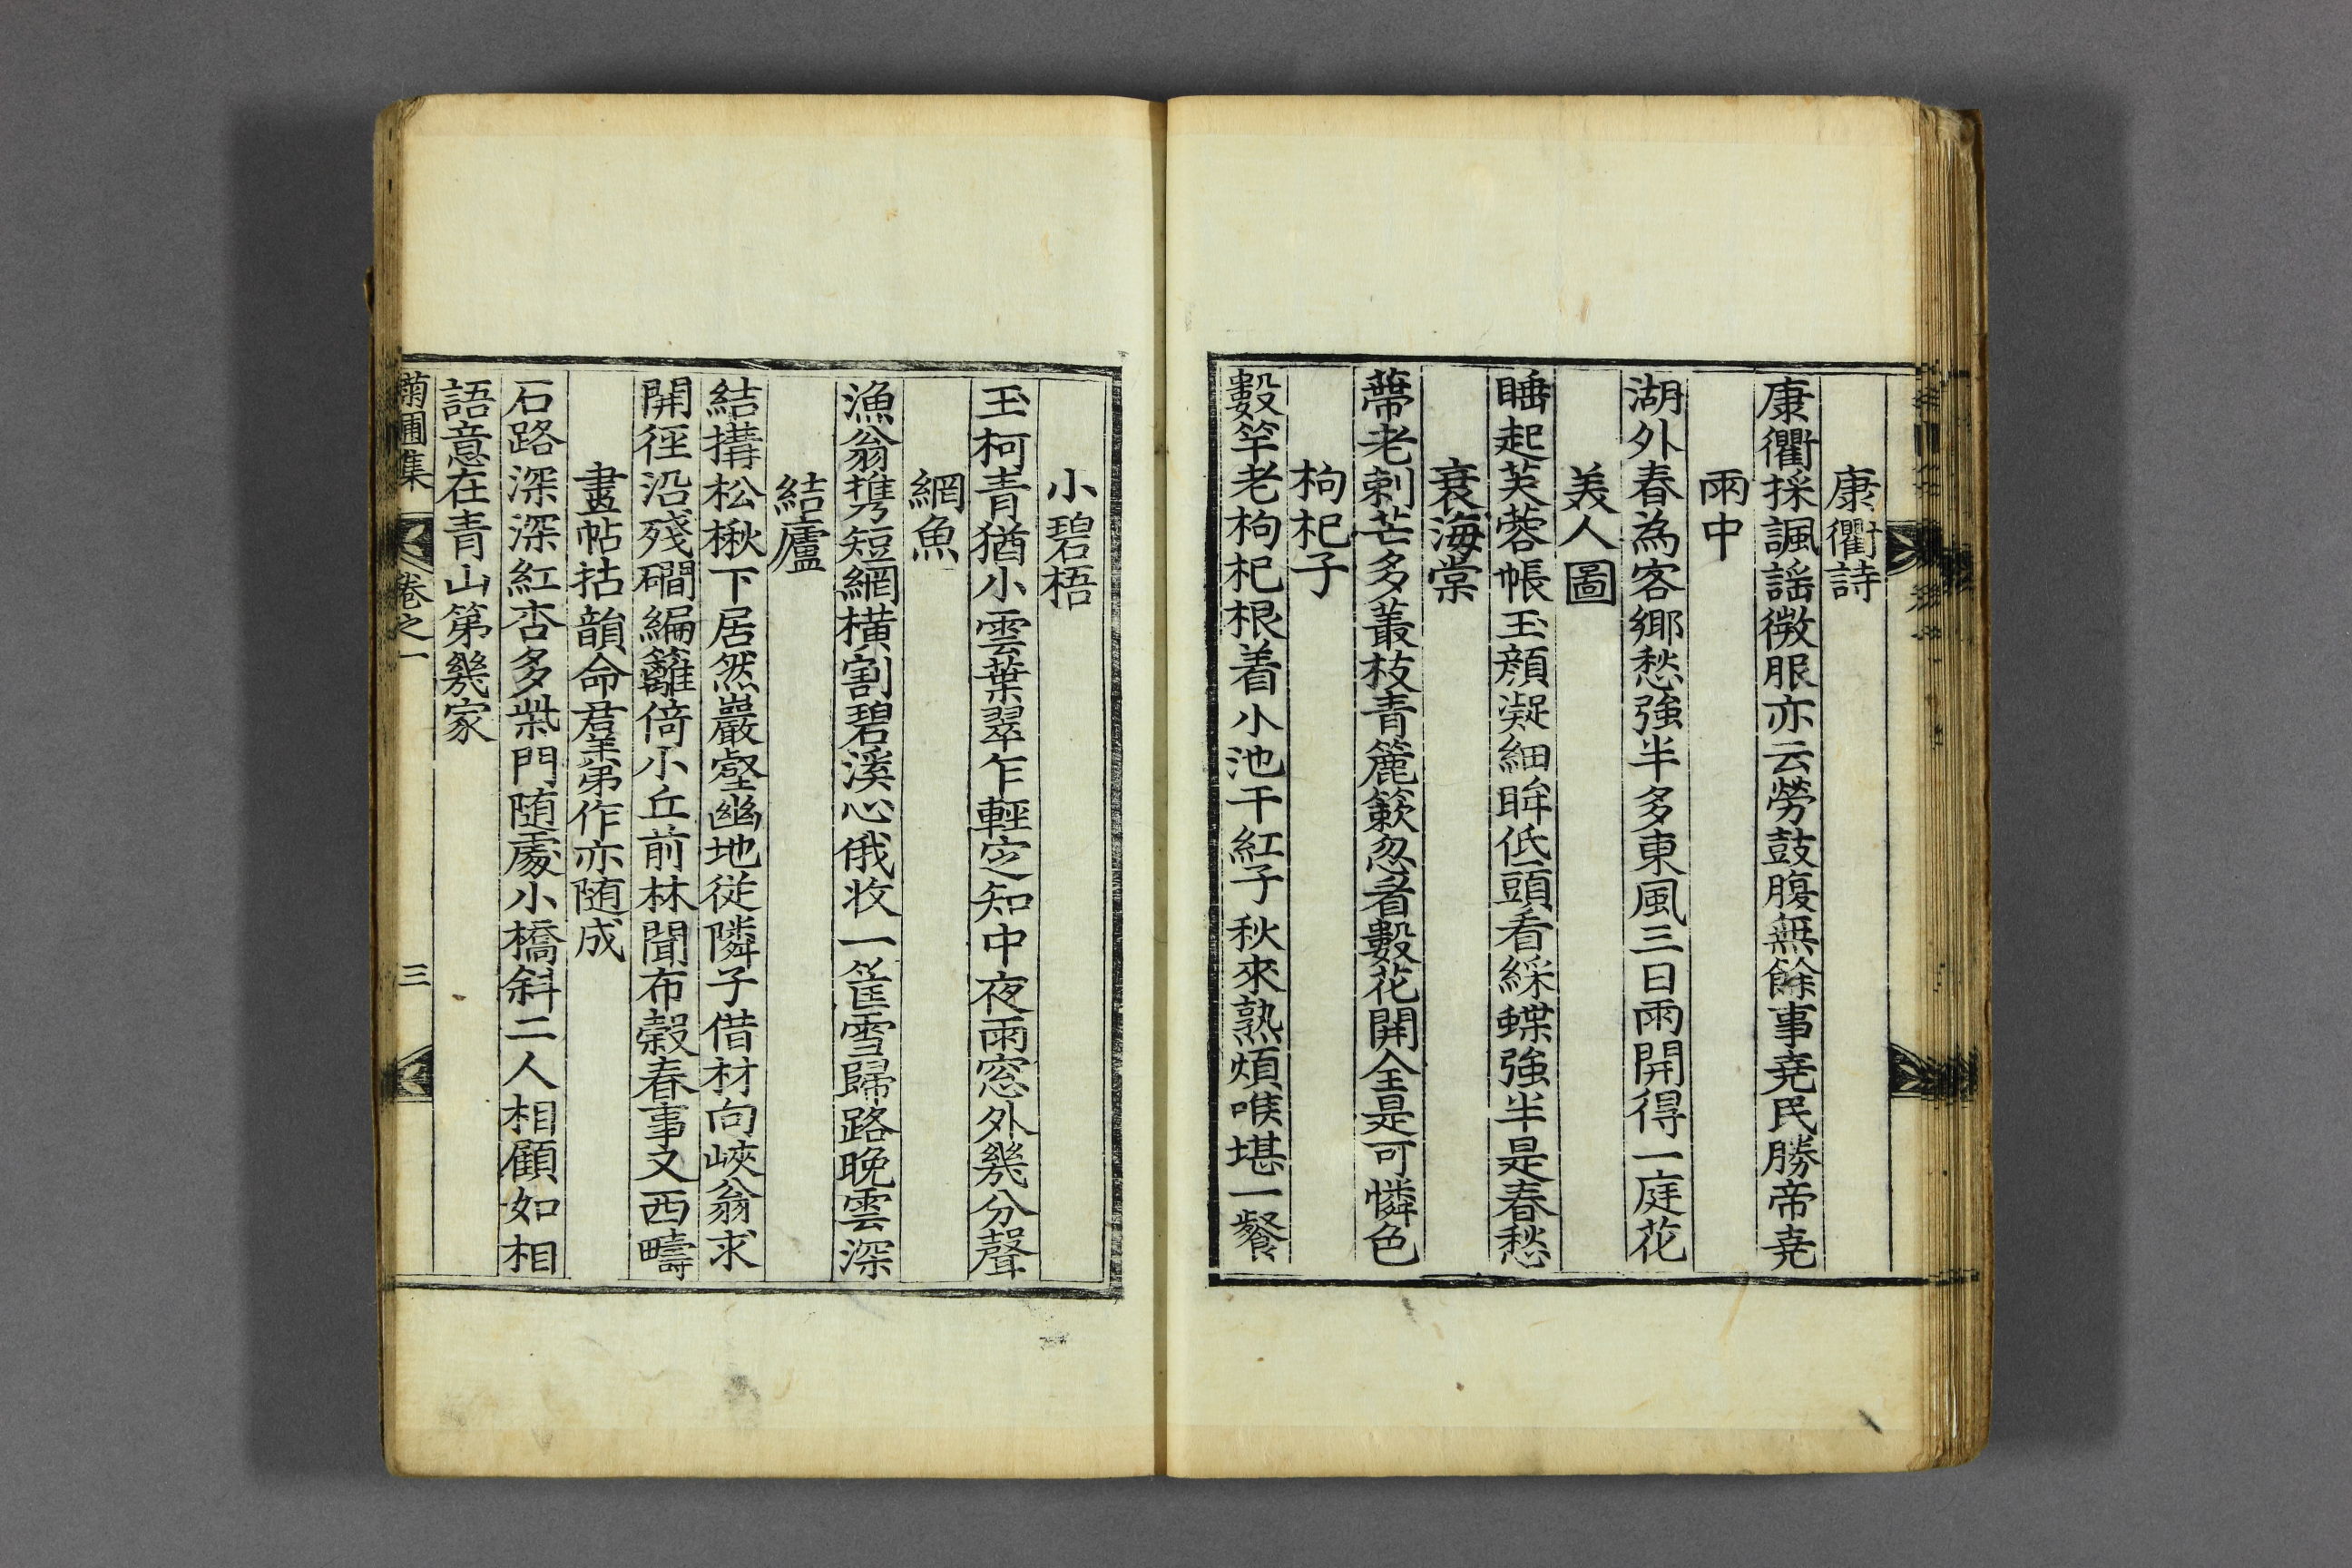 康衢詩
康衢採諷謠微服亦云勞鼓腹無餘事堯民勝帝堯
雨中
湖外春為客鄉愁強半多東風三日雨開得一庭花
美人圖
睡起芙蓉帳玉顔凝細眸低頭看綵蝶強半是春愁
衰海棠
蔕老刺芒多叢枝青簏簌忽看數花開全是可憐色
枸杞子
數竿老枸杞根着小池干紅子秋來熟煩喉堪一餐
小碧梧
玉柯青猶小雲葉翠乍輕定知中夜雨窓外幾分聲
網魚
漁翁携短網橫割碧溪心俄收一筐雪歸路晩雲深
結廬
結搆松楸下居然巖壑幽地從隣子借材向峽翁求
開徑沿殘磵編籬倚小丘前林聞布穀春事又西疇
畫帖拈韻命君業弟作亦随成
石路深深紅杏多柴門随處小橋斜二人相顧如相
語意在青山第幾家
菊圃集 卷之一 三